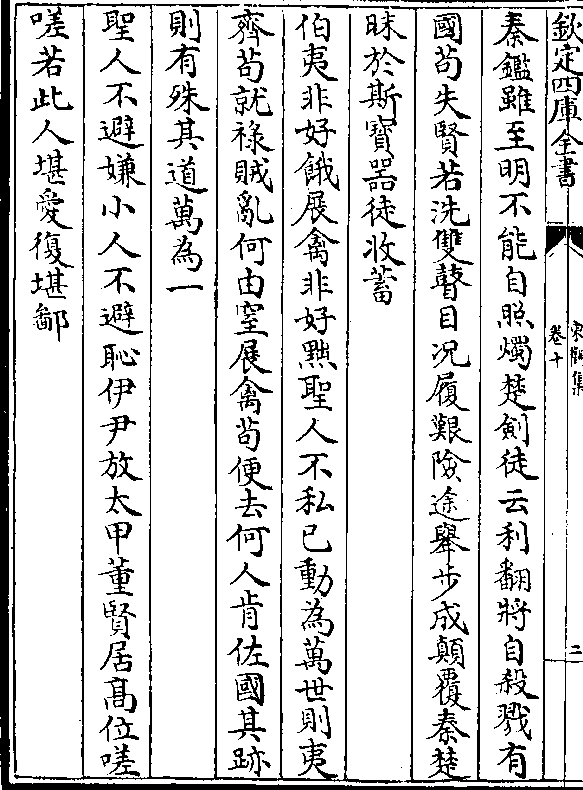 欽定四庫全書
卷十
二
秦鑑雖至明不能自照燭楚劍徒云利翻將自殺戮有
國苟失賢若洗雙瞽目況履艱險途舉步成顛覆秦楚
昧於斯寶器徒收蓄
伯夷非好餓展禽非好黜聖人不私已動為萬世則夷
齊苟就祿賊亂何由窒展禽苟便去何人肯佐國其跡
則有殊其道萬為一
聖人不避嫌小人不避恥伊尹放太甲董賢居高位嗟
嗟若此人堪愛復堪鄙